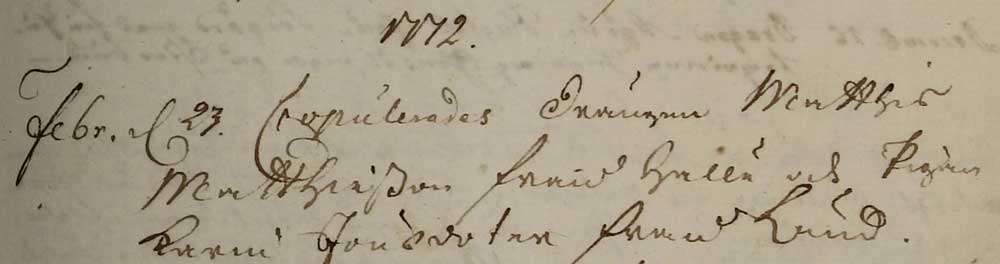 1772.
Febr. d 23. Copulerades Drängen Matthis
Matthisson från Hallu och Pigan
Karin Jonsdoter från Lund.